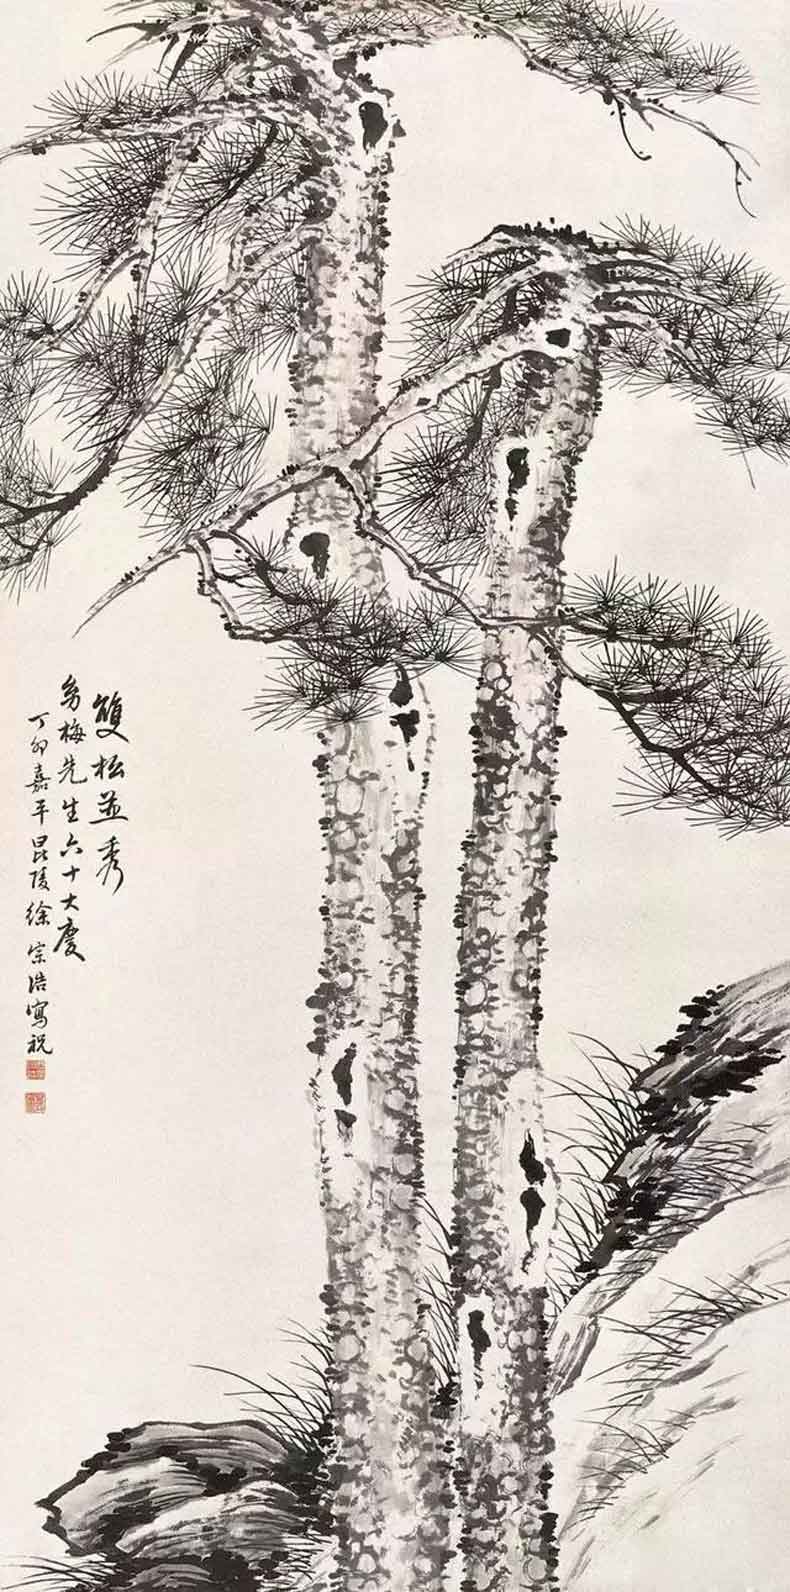 雙松並秀
梅先生六十大慶
丁卯嘉平昆陵徐宗浩寫祝